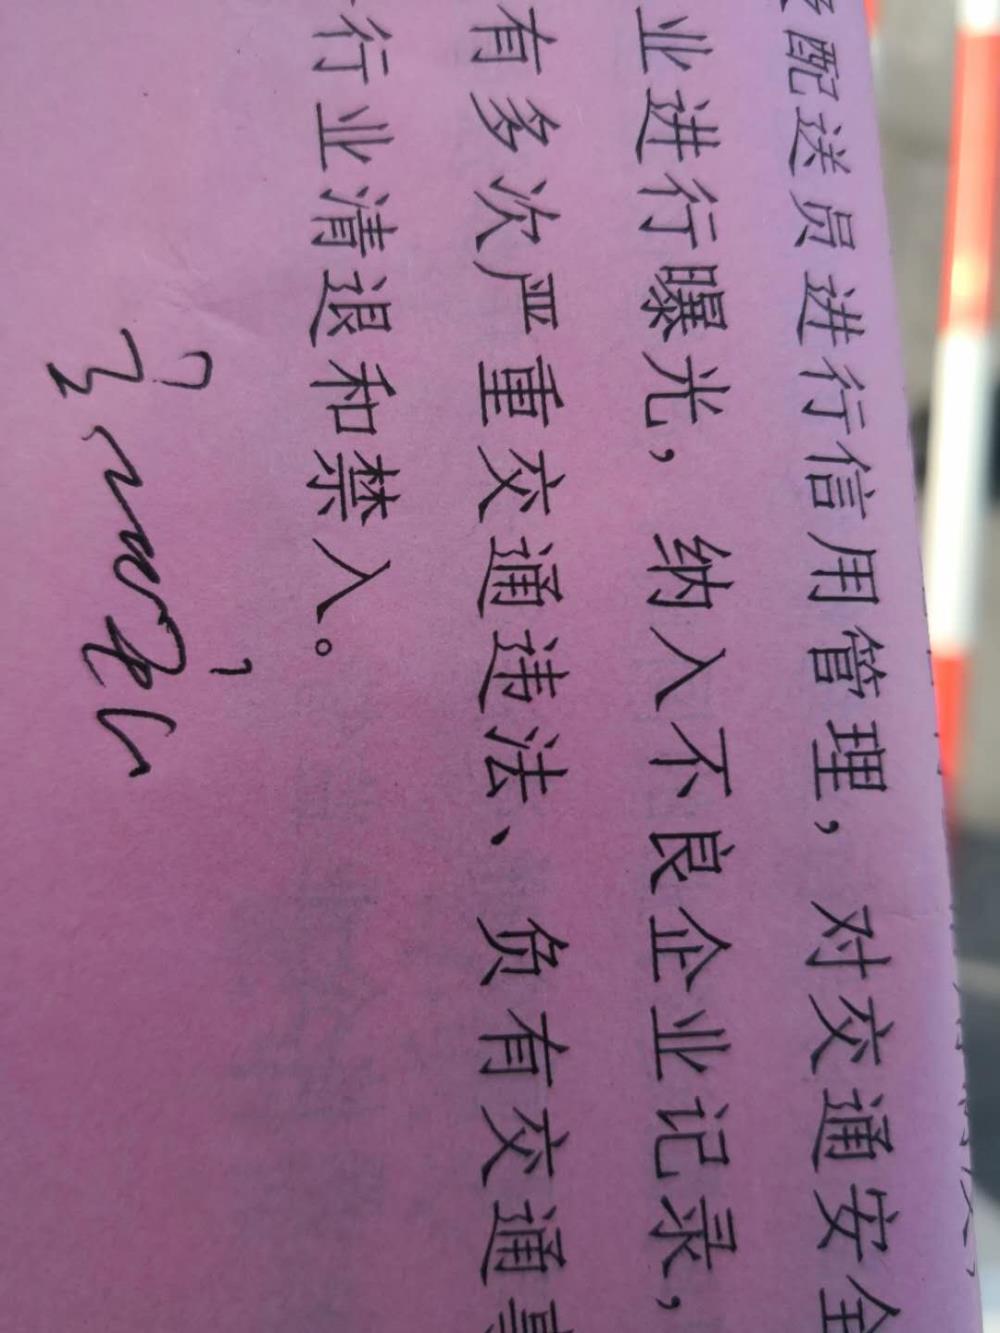 配送员进行信用管理，对交通安全
业进行曝光，纳入不良企业记录，
有多次严重交通违法、负有交通事
行业清退和禁入。